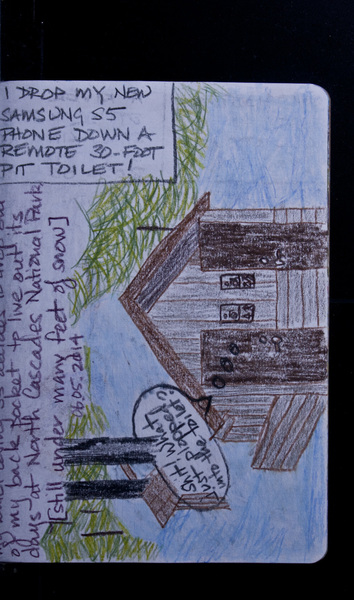 I DROP MY NEW
SAMSUNG S5
PHONE DOWN A
REMOTE 30-FOOT
PIT TOILET!
of my back pocket to live out its
days at North Cascades National Park
[still under many feet of snow]
06.05.2014
Shit! What
just plopped
into the toilet?